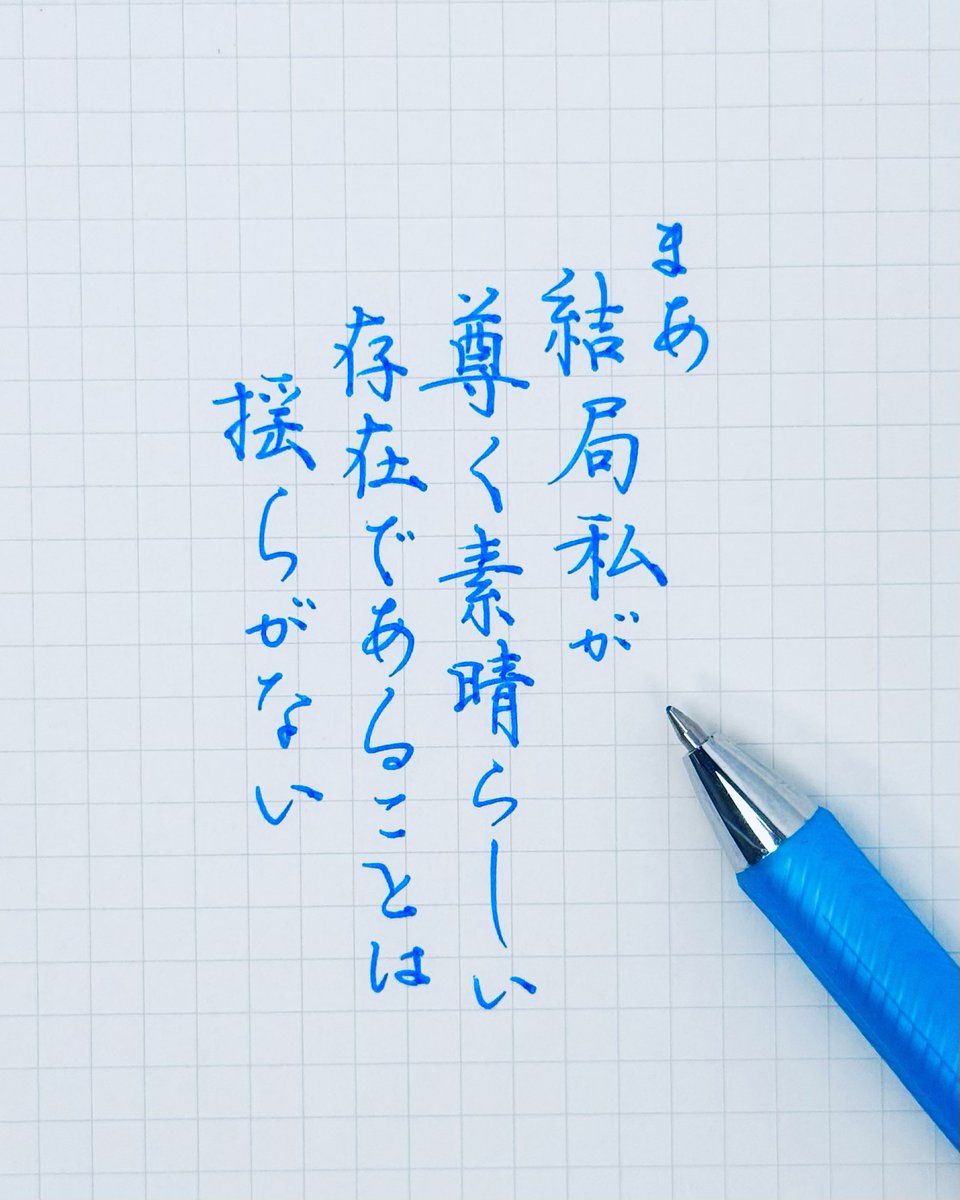 まあ
結局私が
尊く素晴らしい
存在であることは
揺らがない